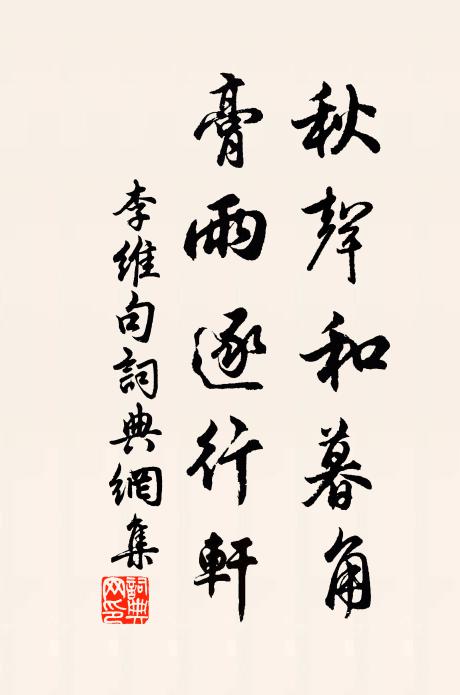 秋聲和暮角
膏雨逐行軒
李維句詞典網集
詞典網印